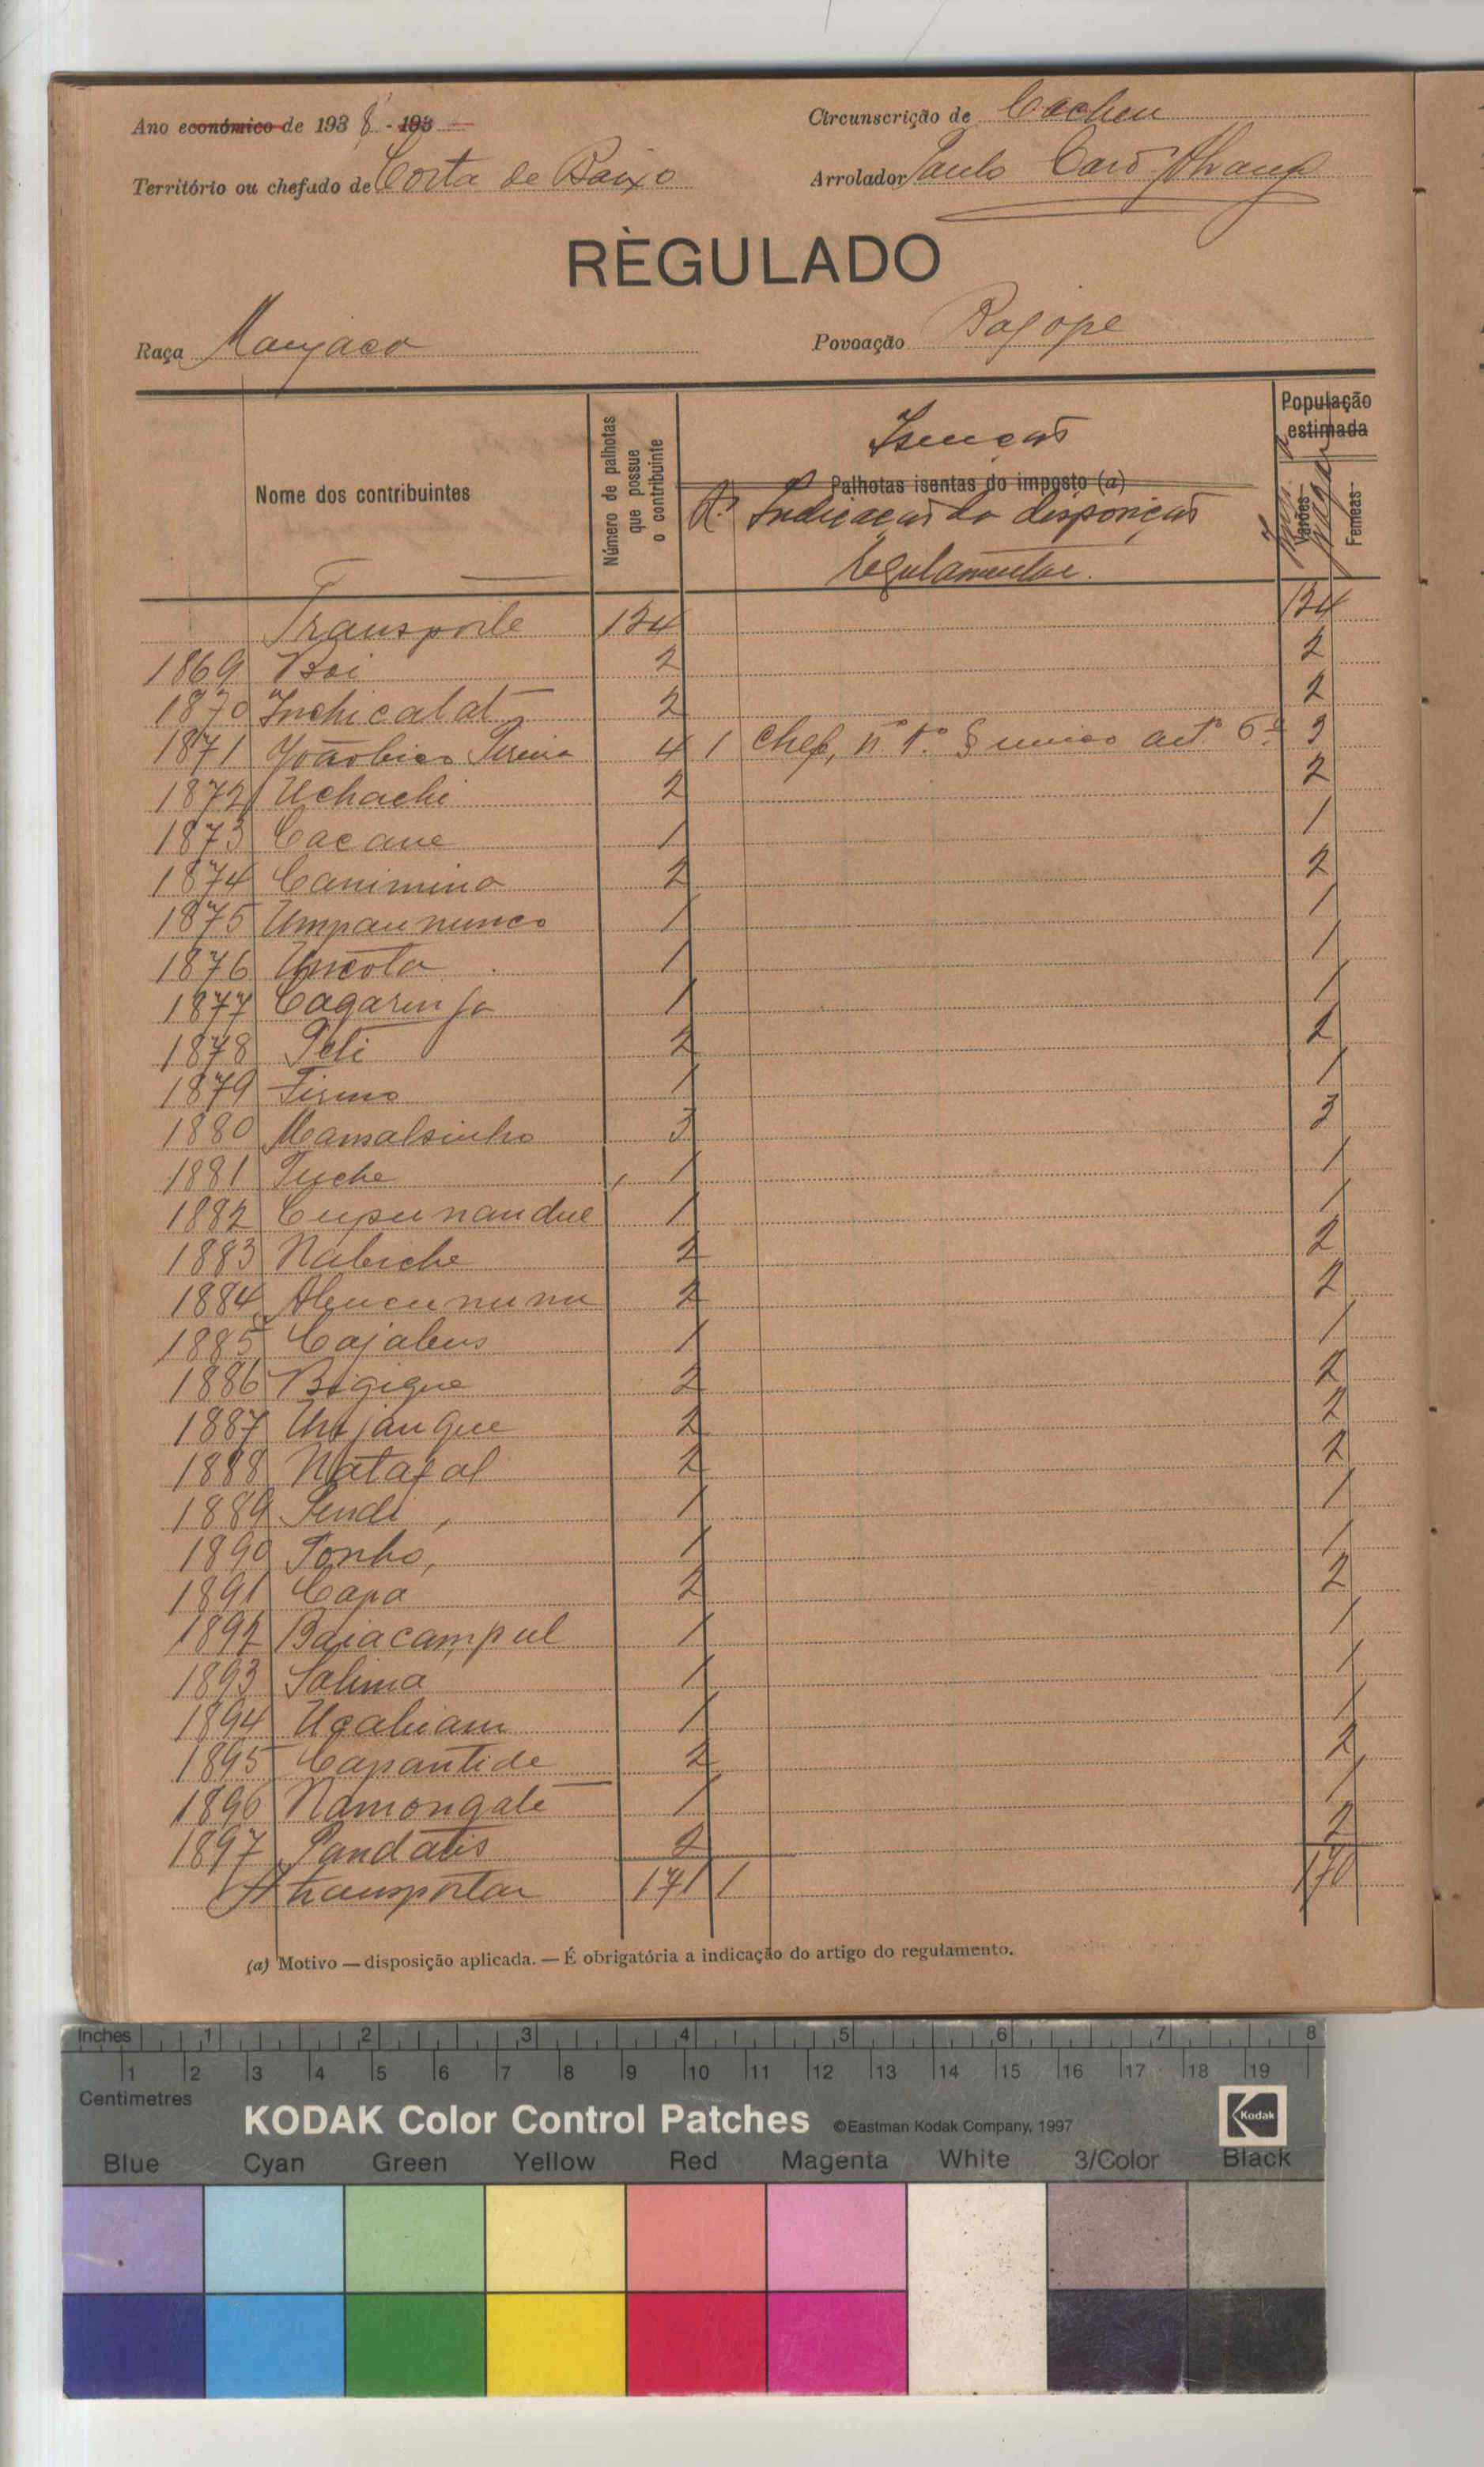 Ano económico de 193 8 - 193
Circunscrição de Cacheu
Território ou chefado de Costa de Baixo
Arrolador Paulo
RÈGULADO
Raça Manjaco
Povoação Bajope
Nome dos contribuintes
Número de palhotas que possue o contribuinte
Isenções
Palhotas isentas do imposto (a)
N.º Indicação da disposição
regulamentar.
População estimada
Varões
Femeas
Imp. a pagar
Transporte 134 134
1869 Boi 2 2
1870 Inchicalat 2 2
1871 4 1 Chefe, n.º 1.º § unico art.º 6.º 3
1872 Uchachi 2 2
1873 Cacane 1 1
1874 Canimino 2 2
1875 Umpaununco 1 1
1876 1 1
1877 Cagarinfa 1 1
1878 Peti 2 2
1879 Firmo 1 1
1880 Mamalsinho 3 3
1881 Tuche 1 1
1882 Cupunandue 1 1
1883 Nabiche 2 2
1884 2 2
1885 Cajabus 1 1
1886 Bigique 2 2
1887 2 2
1888 Natafal 2 2
1889 Sendi 1 1
1890 Tonho, 1 1
1891 Capa 2 2
1892 Baiacampul 1 1
1893 Salima 1 1
1894 1 1
1895 Capantide 2 2
1896 Namongate 1 1
1897 Pandatis 2 2
A transportar 171 1 170
(a) Motivo — disposição aplicada. — É obrigatória a indicação do artigo do regulamento.
Inches 1 2 3 4 5 6 7 8
1 2 3 4 5 6 7 8 9 10 11 12 13 14 15 16 17 18 19
Centimetres
KODAK Color Control Patches ©Eastman Kodak Company, 1997 Kodak
Blue Cyan Green Yellow Red Magenta White 3/Color Black